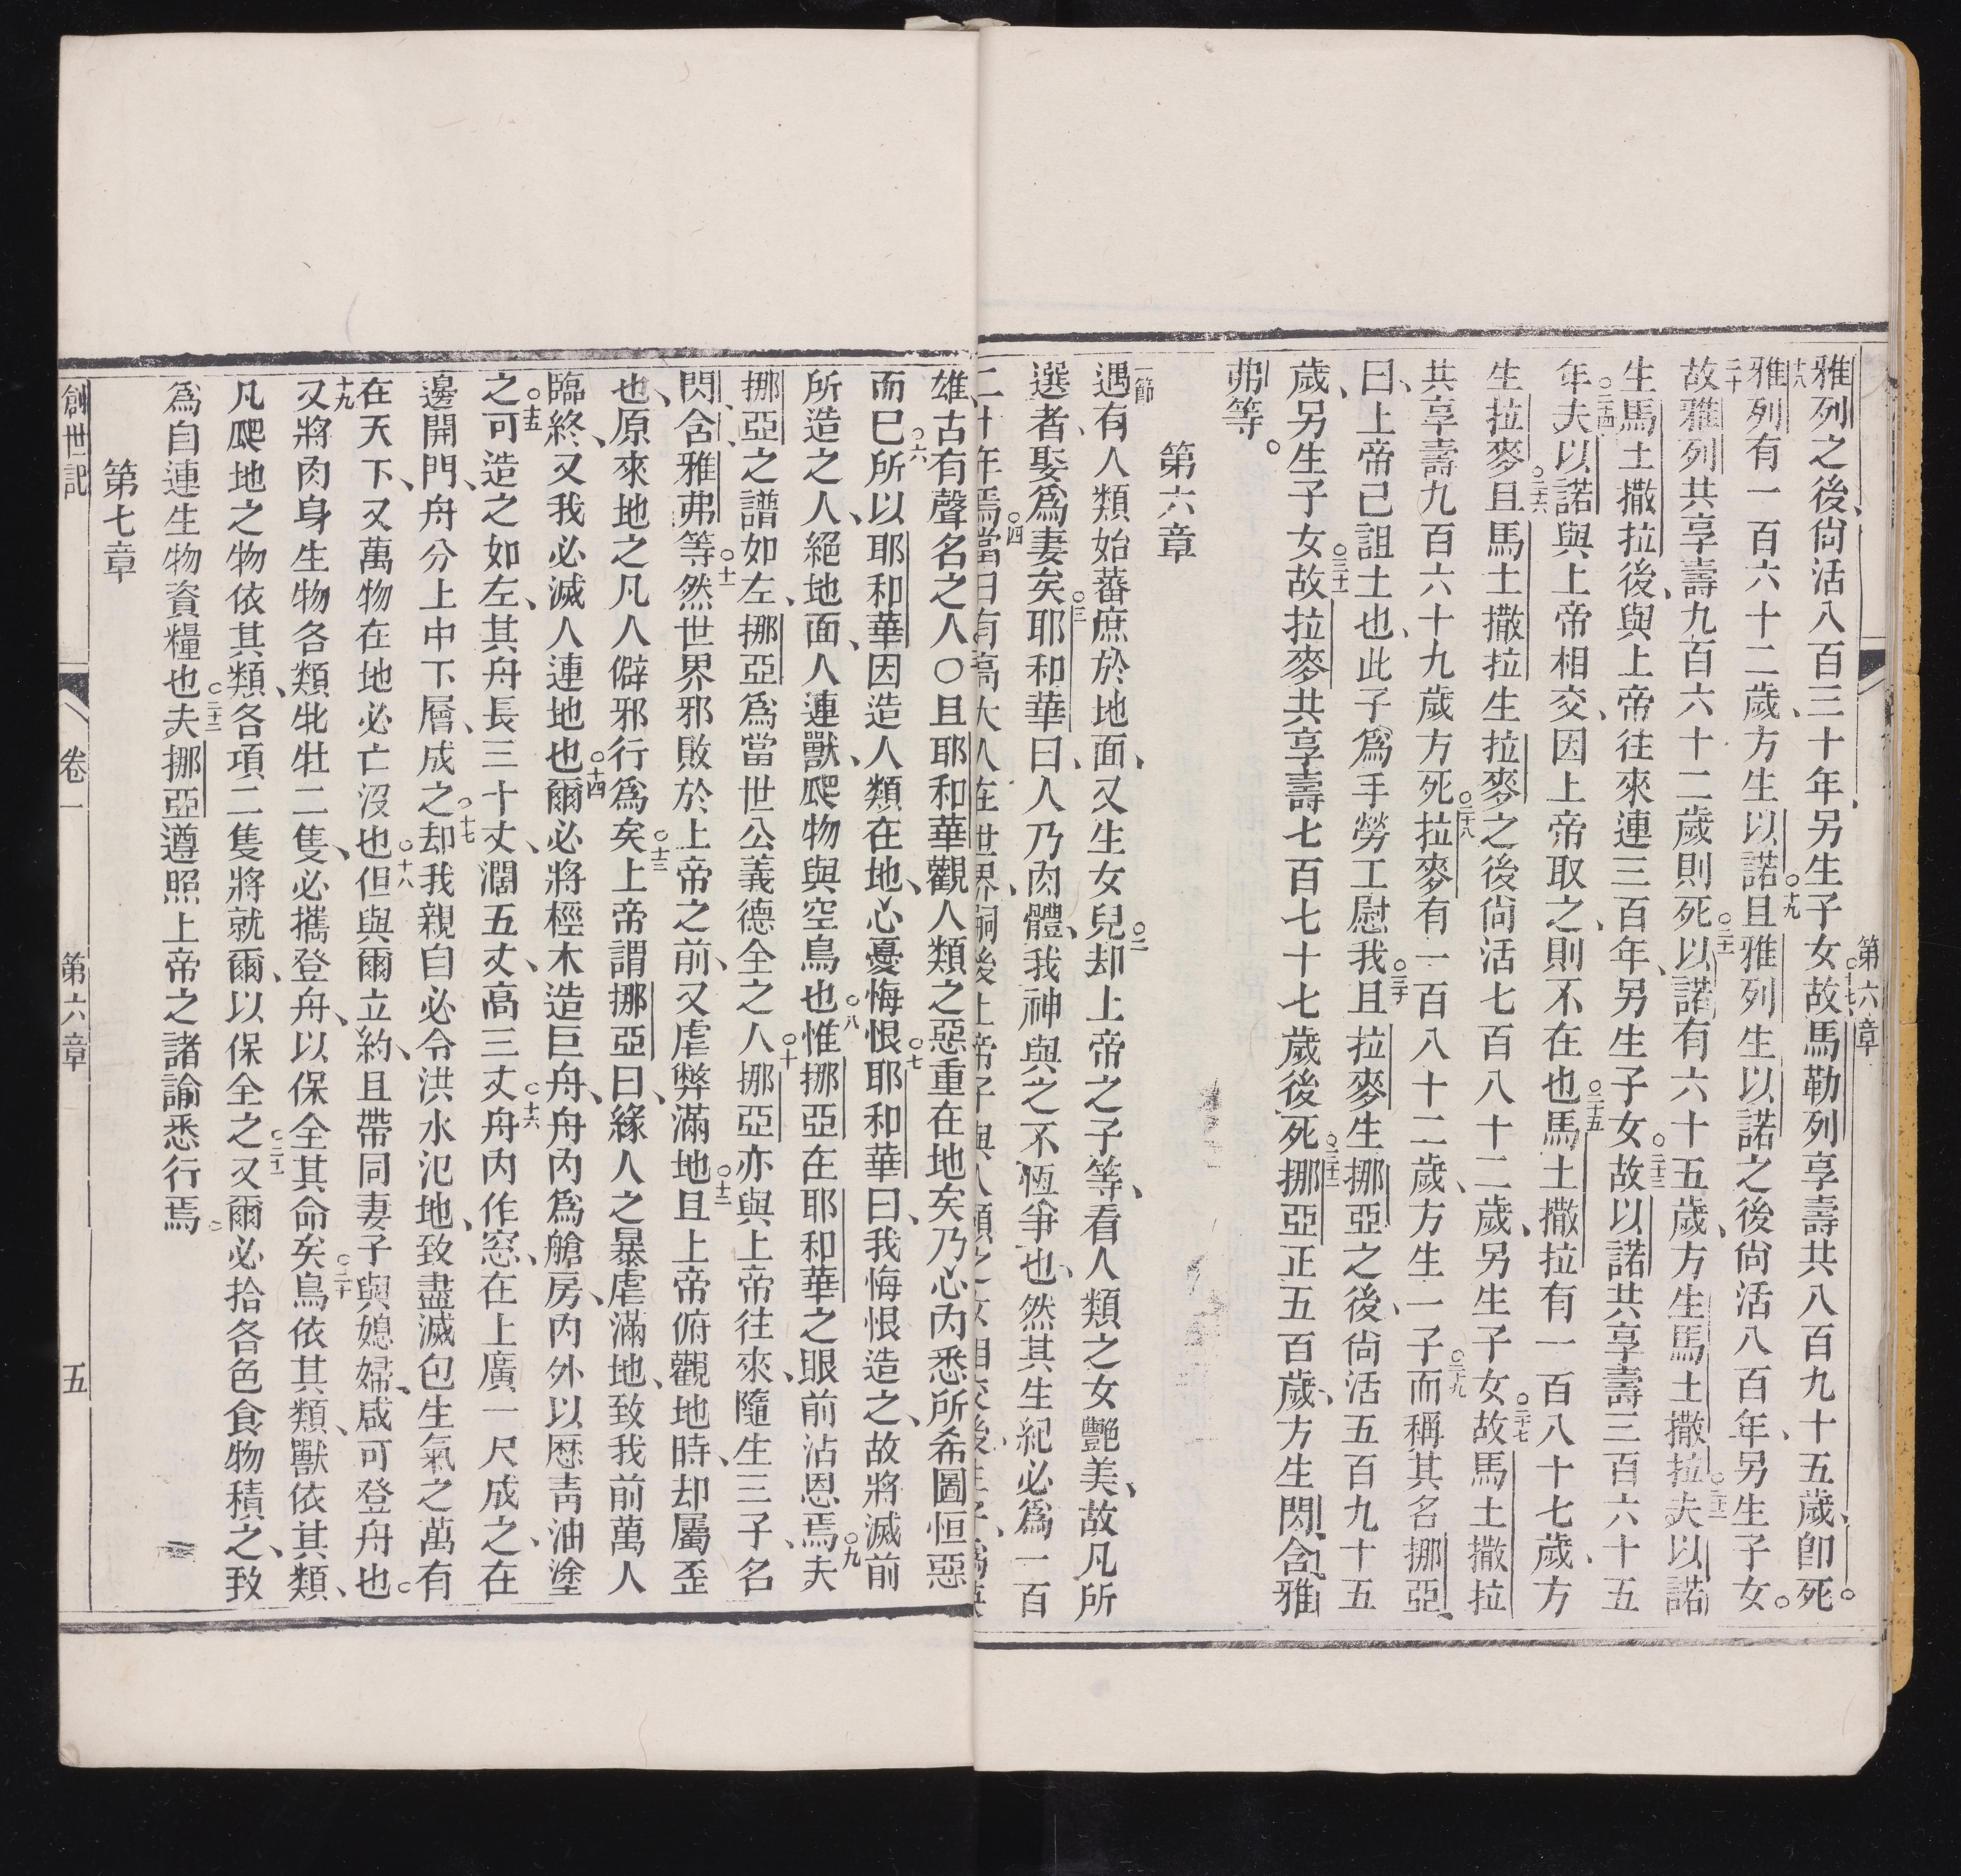 第六章
雅列之後、尙活八百三十年、另生子女、○十七故馬勒列享壽共八百九十五歲、卽死。
十八雅列有一百六十二歲、方生以諾、○十九且雅列生以諾之後尙活八百年、另生子女。
二十故雅列共享壽九百六十二歲則死○二十一以諾有六十五歲、方生馬土撒拉○二十二夫以諾
生馬土撒拉後、與上帝往來連三百年、另生子女○二十三故以諾共享壽三百六十五
年○二十四夫以諾與上帝相交、因上帝取之、則不在也○二十五馬土撒拉有一百八十七歲、方
生拉麥○二十六且馬土撒拉生拉麥之後尙活七百八十二歲、另生子女○二十七故馬土撒拉
共享壽九百六十九歲方死○二十八拉麥有一百八十二歲、方生一子○二十九而稱其名挪亞、
曰、上帝己詛土也、此子爲手勞工慰我○三十且拉麥生挪亞之後、尙活五百九十五
歲、另生子女○三十一故拉麥共享壽七百七十七歲後死○三十二挪亞正五百歲、方生閃、含、雅
弗等。
第六章
一節遇有人類始蕃庶於地面、又生女兒○二却上帝之子等、看人類之女艷美、故凡所
選者、娶爲妻矣○三耶和華曰、人乃肉體、我神與之不恆爭也、然其生紀必爲一百
二十年焉○四當日有高大人在世界、嗣後上帝子與人類之女相交後生子、爲英
雄古有聲名之人○且耶和華觀人類之惡重在地矣乃心內悉所希圖恒惡
而已○六所以耶和華因造人類在地、心憂悔恨○七耶和華曰、我悔恨造之、故將滅前
所造之人、絕地面、人連獸、爬物與空鳥也○八惟挪亞在耶和華之眼前沾恩焉○九夫
挪亞之譜如左、挪亞爲當世公義德全之人○十挪亞亦與上帝往來、隨生三子、名
閃、含、雅弗等○十一然世界邪敗於上帝之前、又虐弊滿地○十二且上帝俯觀地時、却屬歪
也、原來地之凡人僻邪行爲矣○十三上帝謂挪亞曰、緣人之暴虐滿地、致我前萬人
臨終、又我必滅人連地也○十四爾必將桱木造巨舟、舟內爲艙房、內外以瀝靑油塗
之○十五可造之如左、其舟長三十丈、濶五丈、高三丈○十六舟內作窓、在上廣一尺成之、在
邊開門、舟分上中下層、成之○十七却我親自必令洪水氾地、致盡滅包生氣之萬有
在天下、又萬物在地必亡沒也○十八但與爾立約、且帶同妻子與媳婦、咸可登舟也○
十九又將肉身生物各類牝牡二隻、必攜登舟、以保全其命矣○二十鳥依其類、獸依其類、
凡爬地之物依其類、各項二隻將就爾、以保全之○二十一又爾必拾各色食物積之、致
爲自連生物資糧也○二十二夫挪亞遵照上帝之諸諭悉行焉○
第七章
創世記 卷一 第六章 五